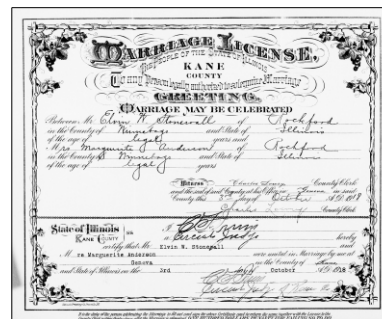 MARRIAGE LICENSE,
THE PEOPLE OF THE STATE OF ILLINOIS
KANE
COUNTY
To any Person legally authorized to solemnize Marriage
GREETING.
MARRIAGE MAY BE CELEBRATED
Between Mr. Elvin W. Stonewall of Rockford
in the County of Winnebago and State of Illinois
of the age of legal years and
Mrs. Marguerite Anderson of Rockford
in the County of Winnebago and State of Illinois
of the age of legal years
Witness County Clerk
and the seal of said County at his Office in Geneva in said
County this 3rd day of October 1918
Charles County Clerk
State of Illinois
KANE COUNTY
I, hereby
certify that Mr. Elvin W. Stonewall and
Mrs Marguerite Anderson were united in Marriage by me at
Geneva in the County of Kane
and State of Illinois on the 3rd day of October 1918